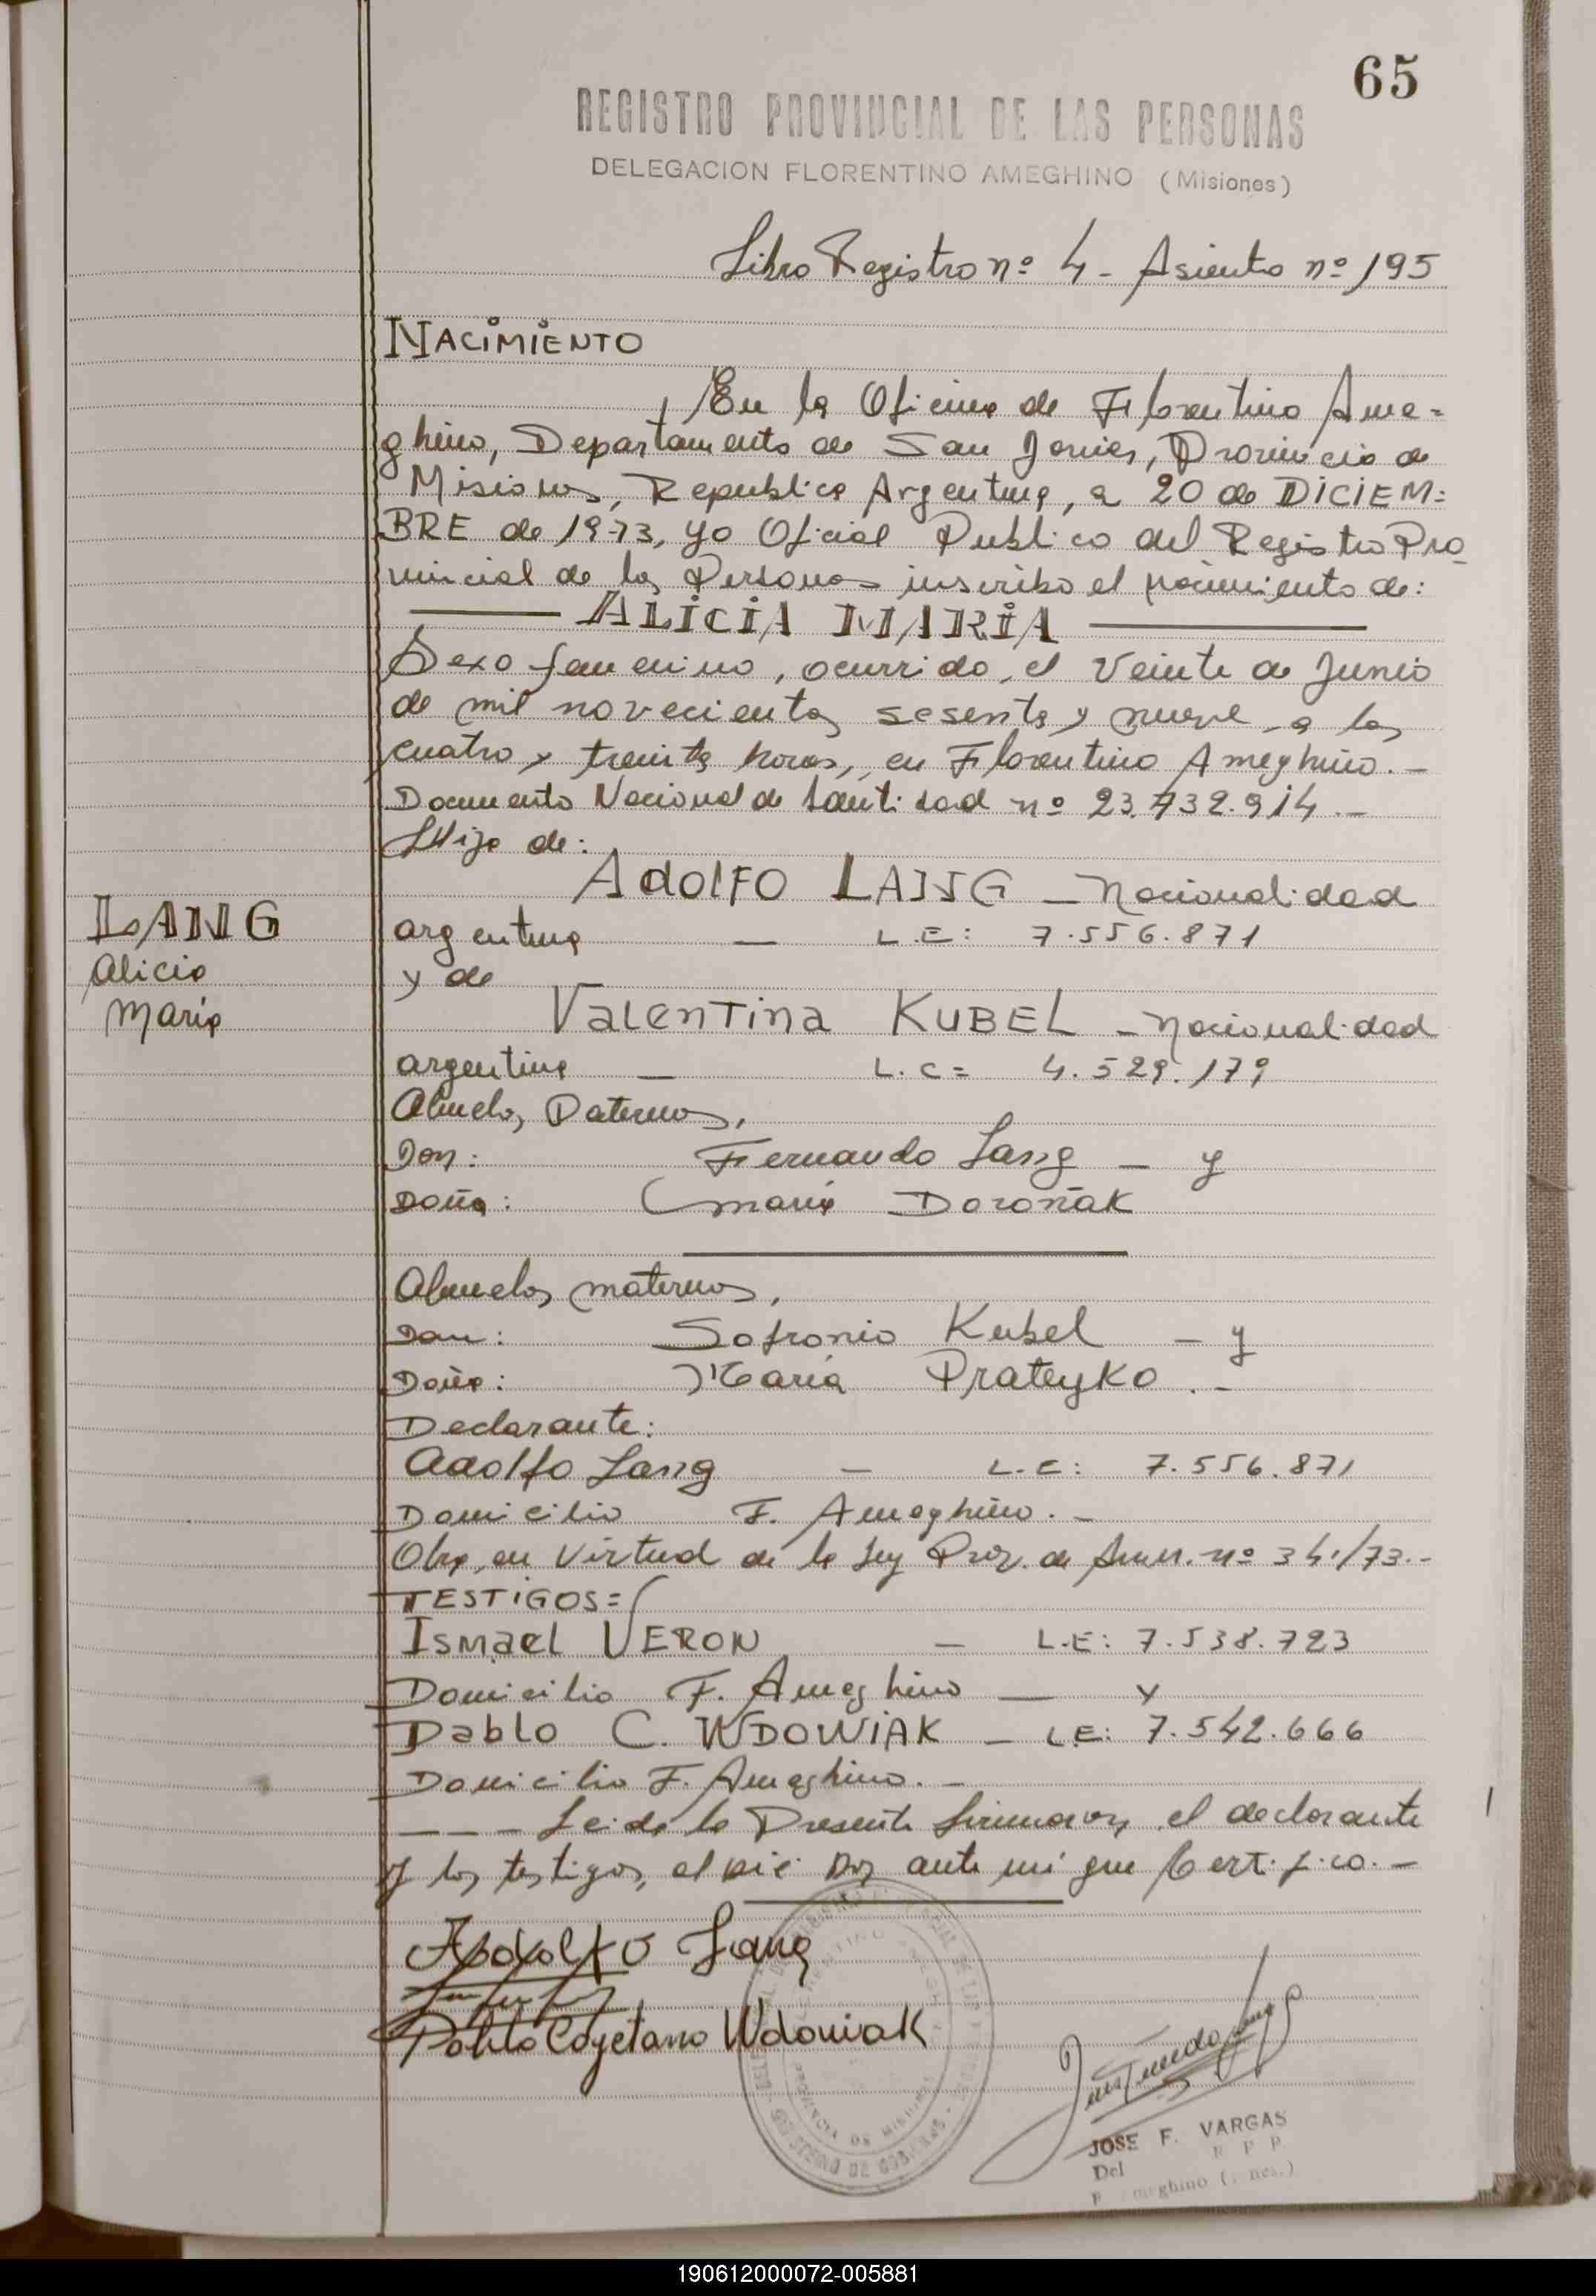 65
REGISTRO PROVINCIAL DE LAS PERSONAS
DELEGACION FLORENTINO AMEGHINO (Misiones)
Libro Registro nº 4 - Asiento nº 195
NACIMIENTO
En la Oficina de Florentino Ame=
ghino, Departamento de San Javier, Provincia de
Misiones, Republica Argentina, a 20 de DICIEM=
BRE de 1973, yo Oficial Publico del Registro Pro
vincial de las Personas inscribo el nacimiento de:
ALICIA MARIA
Sexo femenino, ocurrido, el veinte de Junio
de mil novecientos sesenta y nueve, a las
cuatro y treinta horas, en Florentino Ameghino. -
Documento Nacional de Identidad nº 23.732.914 . -
Hija de:
ADOLFO LANG - Nacionalidad
argentina - L.E: 7.556.871
y de
Valentina KUBEL - Nacionalidad
argentina - L.C= 4.529.179
Abuelos Paternos,
Don: Fernando Lang - y
Doña: Maria Doroñak
Abuelos maternos,
Don: Sofronio Kubel - y
Doña: Maria Prateyko . -
Declarante:
Adolfo Lang - L.E: 7.556.871
Domicilio F. Ameghino. -
Obra, en Virtud de la Ley Prov. de nº 341/73. -
TESTIGOS=
Ismael VERON - L.E: 7.538.723
Domicilio F. Ameghino - y
Pablo C. WDOWIAK - L.E: 7.542.666
Domicilio F. Ameghino. -
--- Leida la Presente firmaron, el declarante
y los testigos, ante mi que Certifico. -
LANG
Alicia
Maria
Adolfo Lang
Pablo Cayetano Wdowiak
JOSE F. VARGAS
Del R. P. P.
190612000072-005881